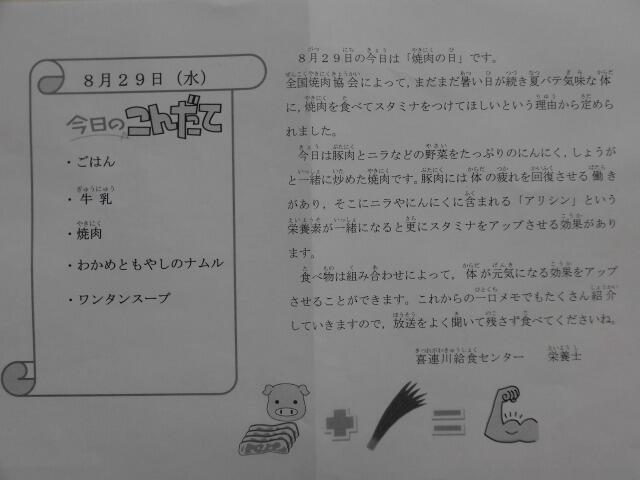 8月29日(水)
今日のこんだて
・ごはん
・牛乳
・焼肉
・わかめともやしのナムル
・ワンタンスープ
8月29日の今日は「焼肉の日」です。
全国焼肉協会によって,まだまだ暑い日が続き夏バテ気味な体
に,焼肉を食べてスタミナをつけてほしいという理由から定め
られました。
今日は豚肉とニラなどの野菜をたっぷりのにんにく,しょうが
と一緒に炒めた焼肉です。豚肉には体の疲れを回復させる働き
があり,そこにニラやにんにくに含まれる「アリシン」という
栄養素が一緒になると更にスタミナをアップさせる効果があり
ます。
食べ物は組み合わせによって,体が元気になる効果をアップ
させることができます。これからの一口メモでもたくさん紹介
していきますので,放送をよく聞いて残さず食べてくださいね。
喜連川給食センター 栄養士